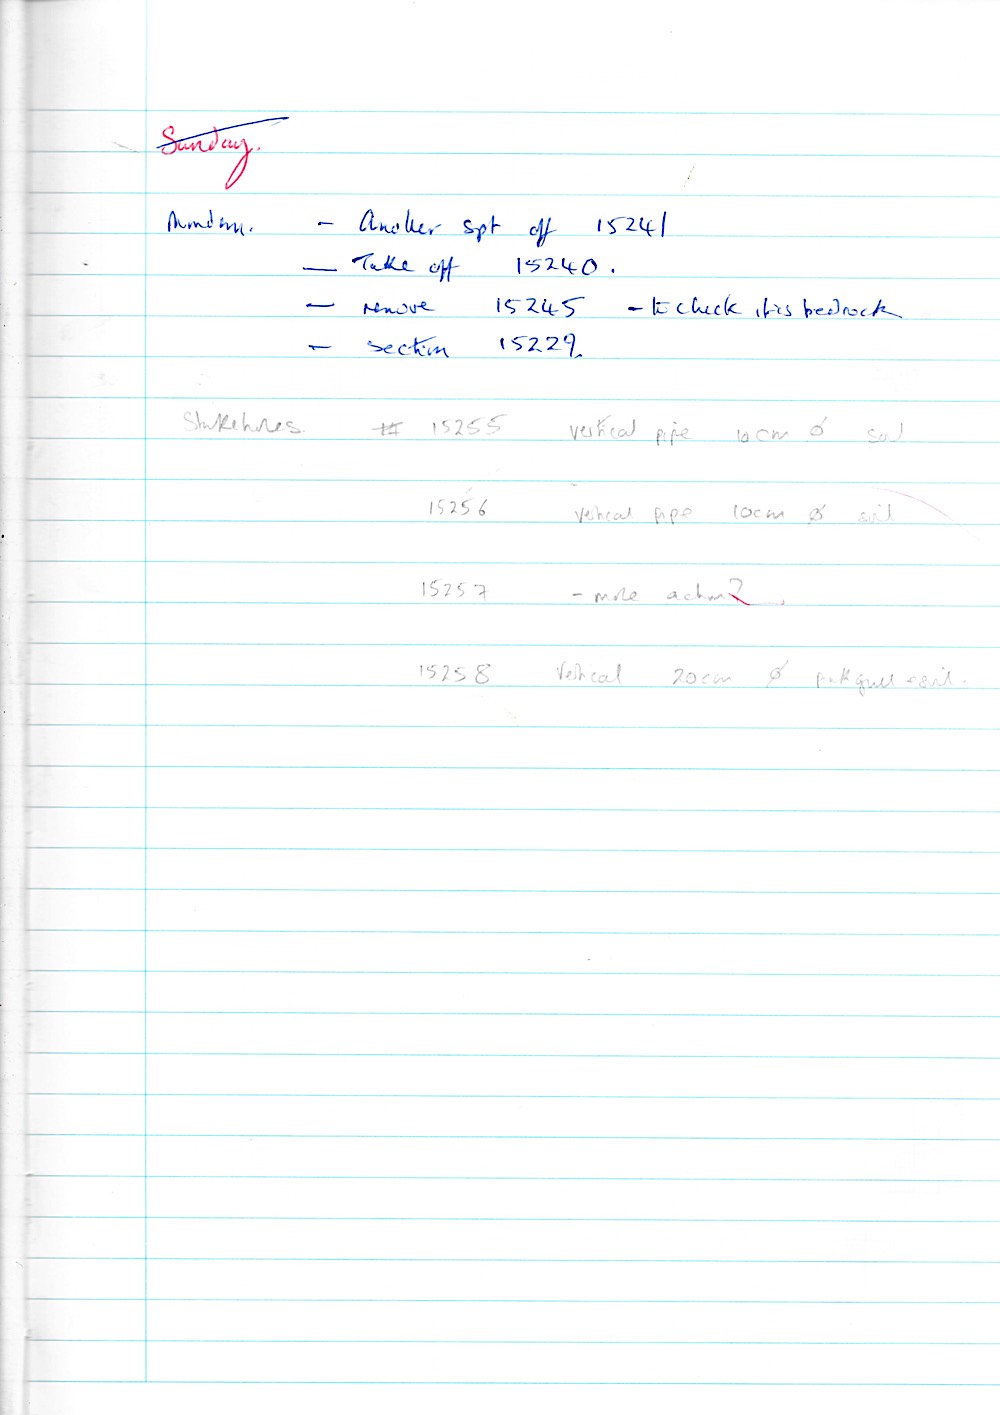 Sunday.
Monday. - Another spit off 15241
- Take off 15240.
- remove 15245 - to check it is bedrock
- section 15229.
Stakeholes 15255 vertical pipe 10cm Ø soil
15256 vertical pipe 10cm Ø soil
15257 - mole action?
15258 vertical 20cm Ø soil.